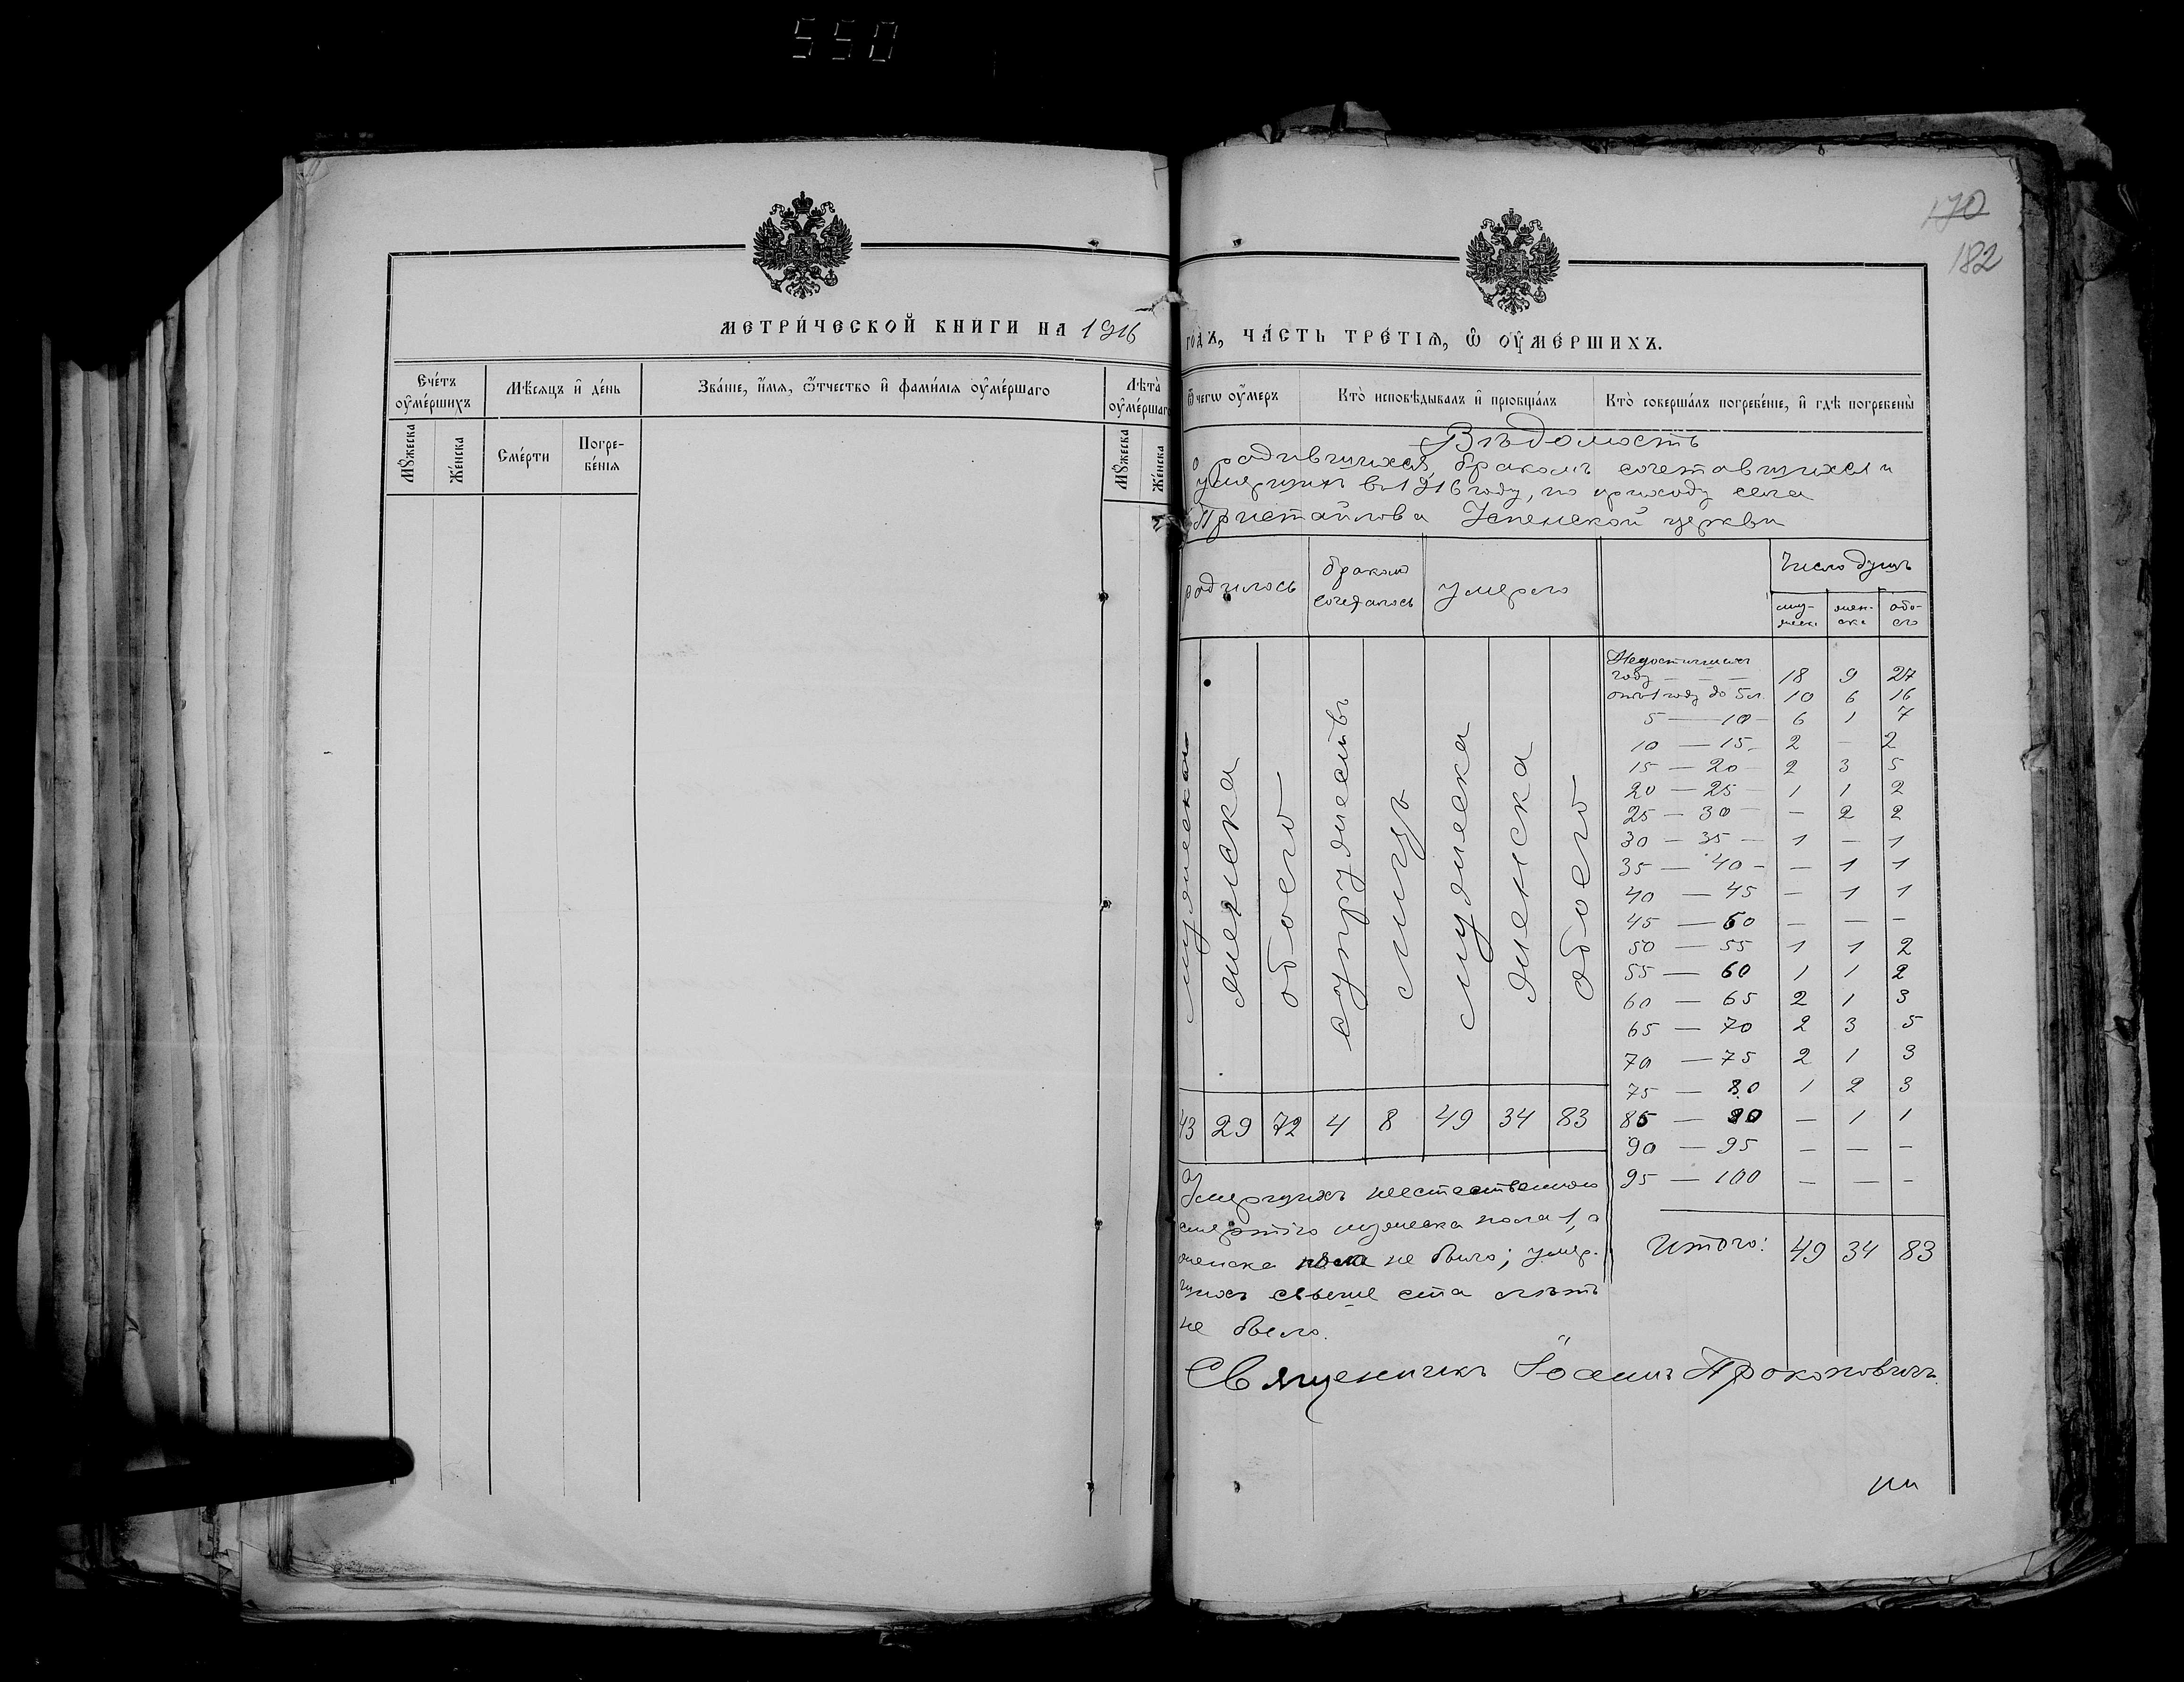 550
170
182
МЕТРИ́ЧЕСКОЙ КНИГИ НА 1916
ГОДЪ, ЧА́СТЬ ТРЕ́ТІѦ, Ѡ ОУ҆МЕ́РШИХЪ.
Счетъ оу҆ме́ршихъ
Мѣ́сяцъ и҆ де́нь
Зва́ніе, и҆́мя, ѻ҆́тчество и҆ фами́лія оу҆ме́ршаго
Лѣта̀ оу҆ме́ршаго
Ѿ чегѡ оу҆́меръ
Кто̀ исповѣ́дывалъ и҆ пріобща́лъ
Кто̀ соверша́лъ погребе́ніе, и҆ гдѣ̀ погребены̀
Мꙋ́жеска
Же́нска
Сме́рти
Погре-
бе́нія
Мꙋ́жеска
Же́нска
Вѣдомость
о родившихся, бракомъ сочетавшихся и
умершихъ въ 1916 году, по приходу села
Пристайлова Успенской церкви
родилось
бракомъ
сочеталось
умерло
Число душъ
му-
жеска
жен-
ска
обо-
его
мужескаго
женска
обоего
супружествъ
лицъ
мужеска
женска
обоего
43 29 72 4 8 49 34 83
Недостигшихъ
году — — — 18 9 27
отъ 1 году до 5 л. 10 6 16
5 — 10 — 6 1 7
10 — 15 — 2 — 2
15 — 20 — 2 3 5
20 — 25 — 1 1 2
25 — 30 — — 2 2
30 — 35 — 1 — 1
35 — 40 — — 1 1
40 — 45 — 1 1
45 — 50 — — —
50 — 55 1 1 2
55 — 60 1 1 2
60 — 65 2 1 3
65 — 70 2 3 5
70 — 75 2 1 3
75 — 80 1 2 3
85 — 90 — 1 1
90 — 95 — — —
95 — 100 — — —
Итого: 49 34 83
Умершихъ неестественною
смертію мужеска пола 1, а
женска пола не было; умер-
шихъ свыше ста лѣтъ
не было.
Священникъ Іоаннъ Прокоповичъ.